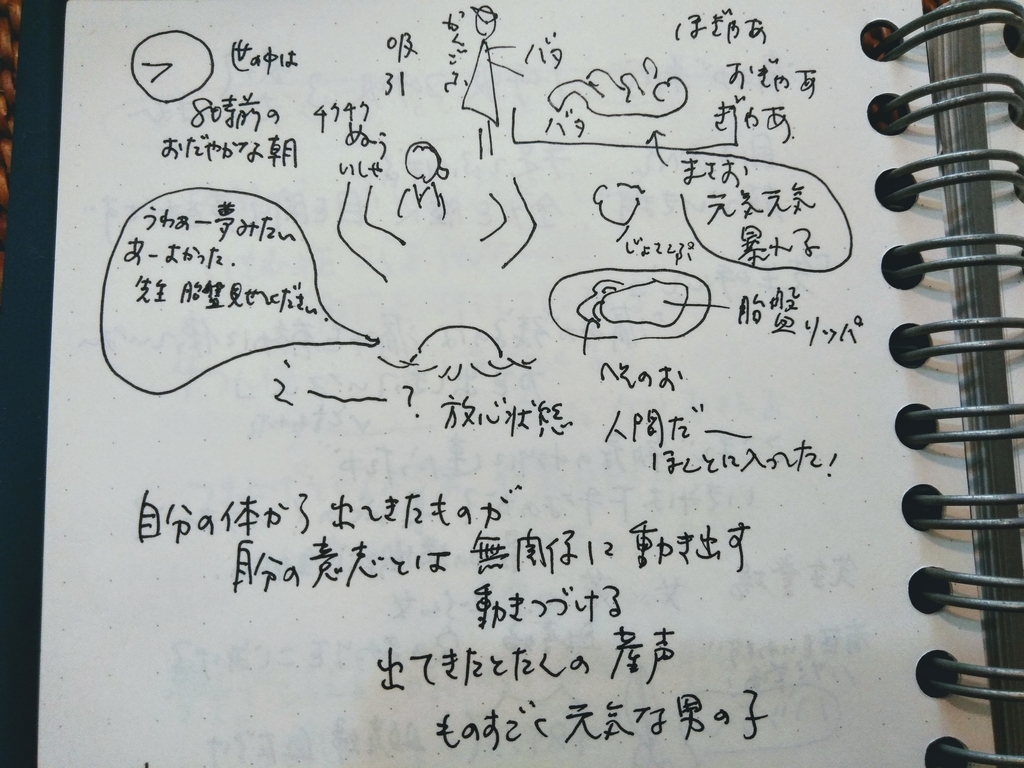 世の中は
8時前の
おだやかな朝
吸引
かんごさん
バタ
バタ
ほぎゃあ
おぎゃあ
ぎゃあ
チクチク
ぬーう
いしゃ
まさお
元気元気
暴れ子
じょさんぷ
うわぁー夢みたい
あーよかった.
先生 胎盤見せてください.
胎盤
リッパ
へそのお
?
放心状態
人間だー
ほんとに入ってた!
自分の体から出てきたものが
自分の意志とは無関係に動き出す
動きつづける
出てきたとたんの産声
ものすごく元気な男の子